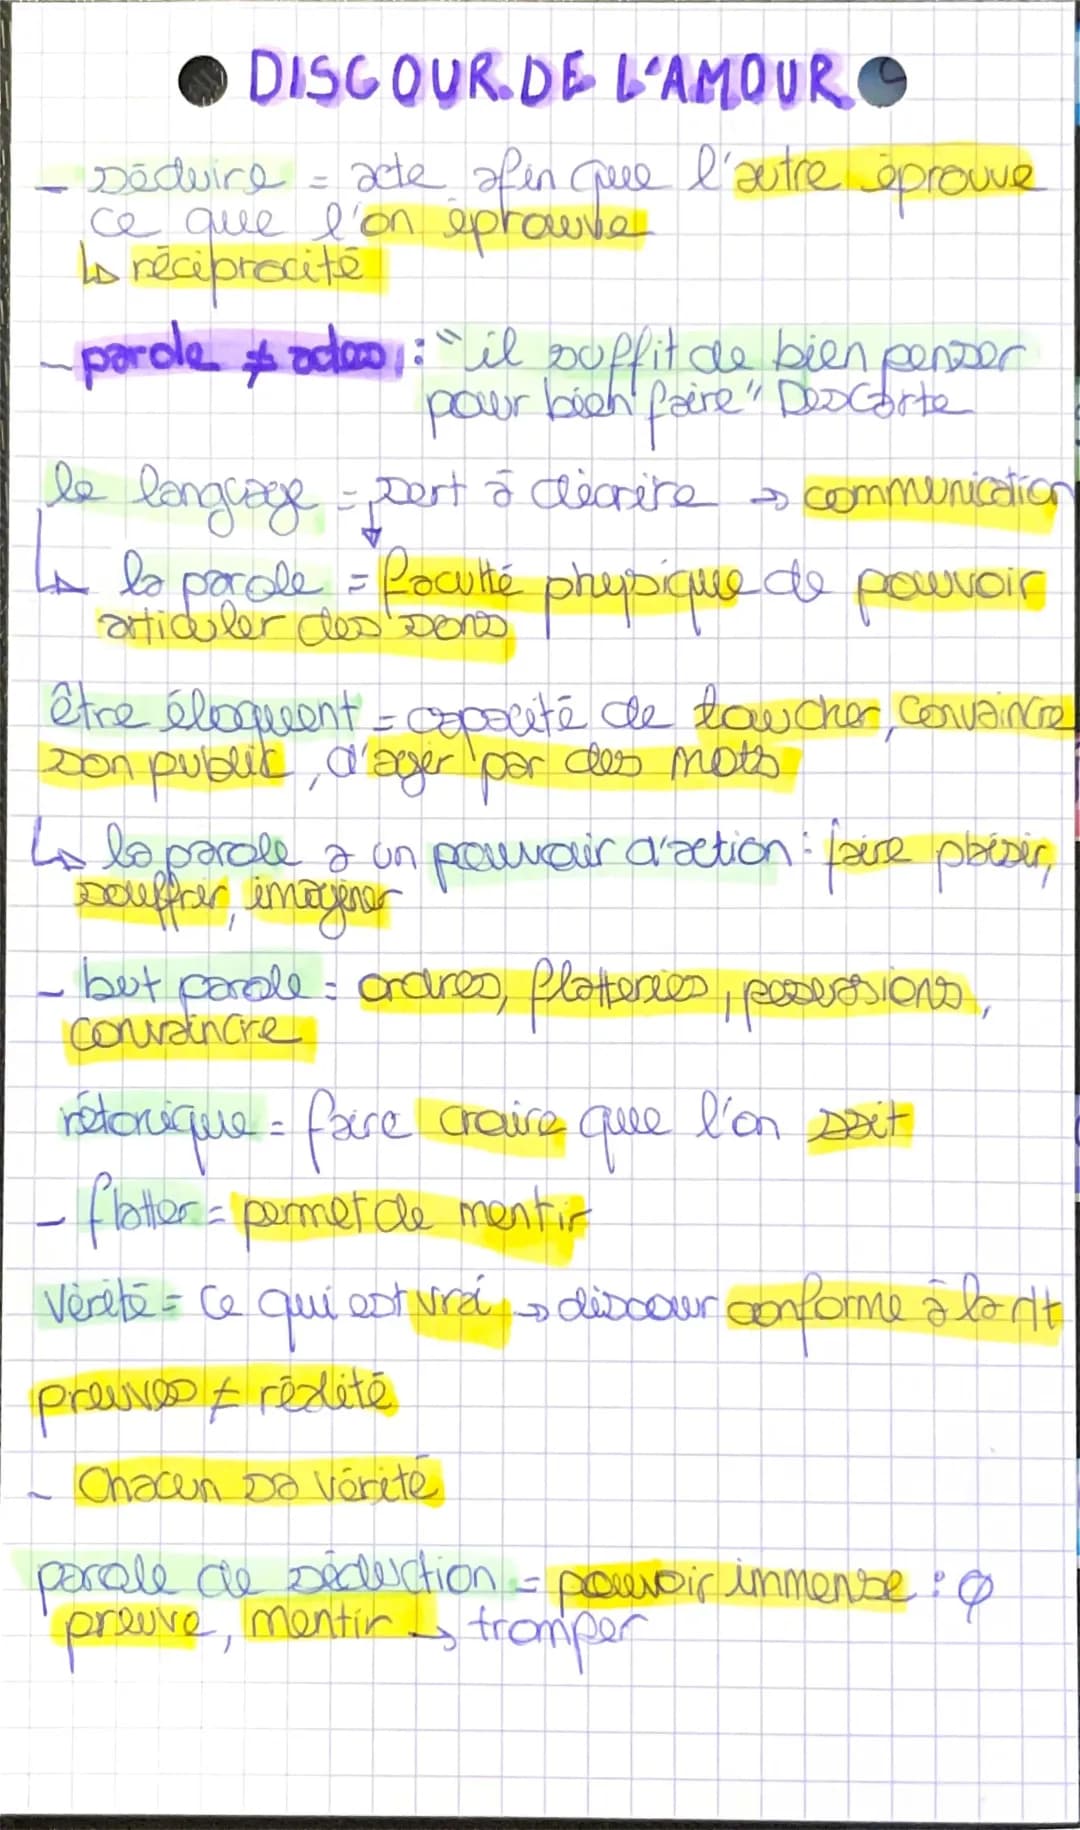 DISCOUR DE L'AMOUR
- séduire = acte afin que l'autre éprouve
ce que l'on éprouve
↳ réciprocité
- parole ≠ actes : "il suffit de bien penser
pour bien faire" DesCarte
le langage = sert à décrire → communication
↳ la parole = faculté physique de pouvoir
articuler des sons
être éloquent = capacité de toucher, convaincre
son public, d'agir par des mots
↳ la parole a un pouvoir d'action : faire plaisir,
souffrir, imaginer
- but parole = ordres, flatteries, persuasions,
convaincre
rétorique = faire croire que l'on sait
- flatter = permet de mentir
Vérité = Ce qui est vrai → discour conforme à la rlt
preuves ≠ réalité
- Chacun sa vérité
parole de séduction = pouvoir immense : φ
preuve, mentir → tromper